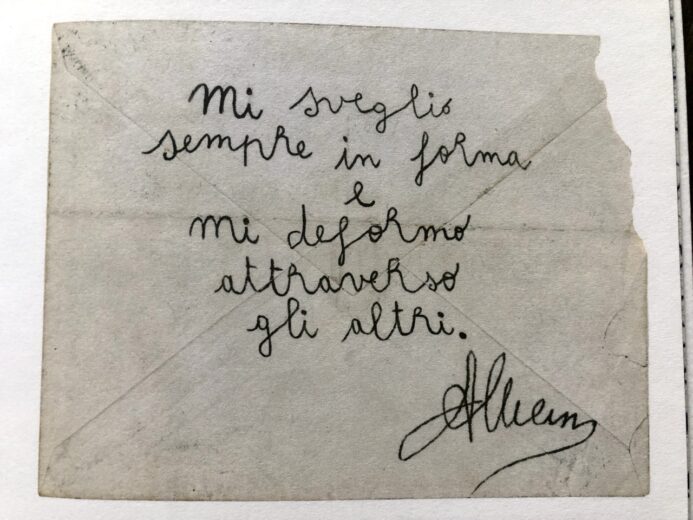 Mi sveglio
sempre in forma
e
mi deformo
attraverso
gli altri.